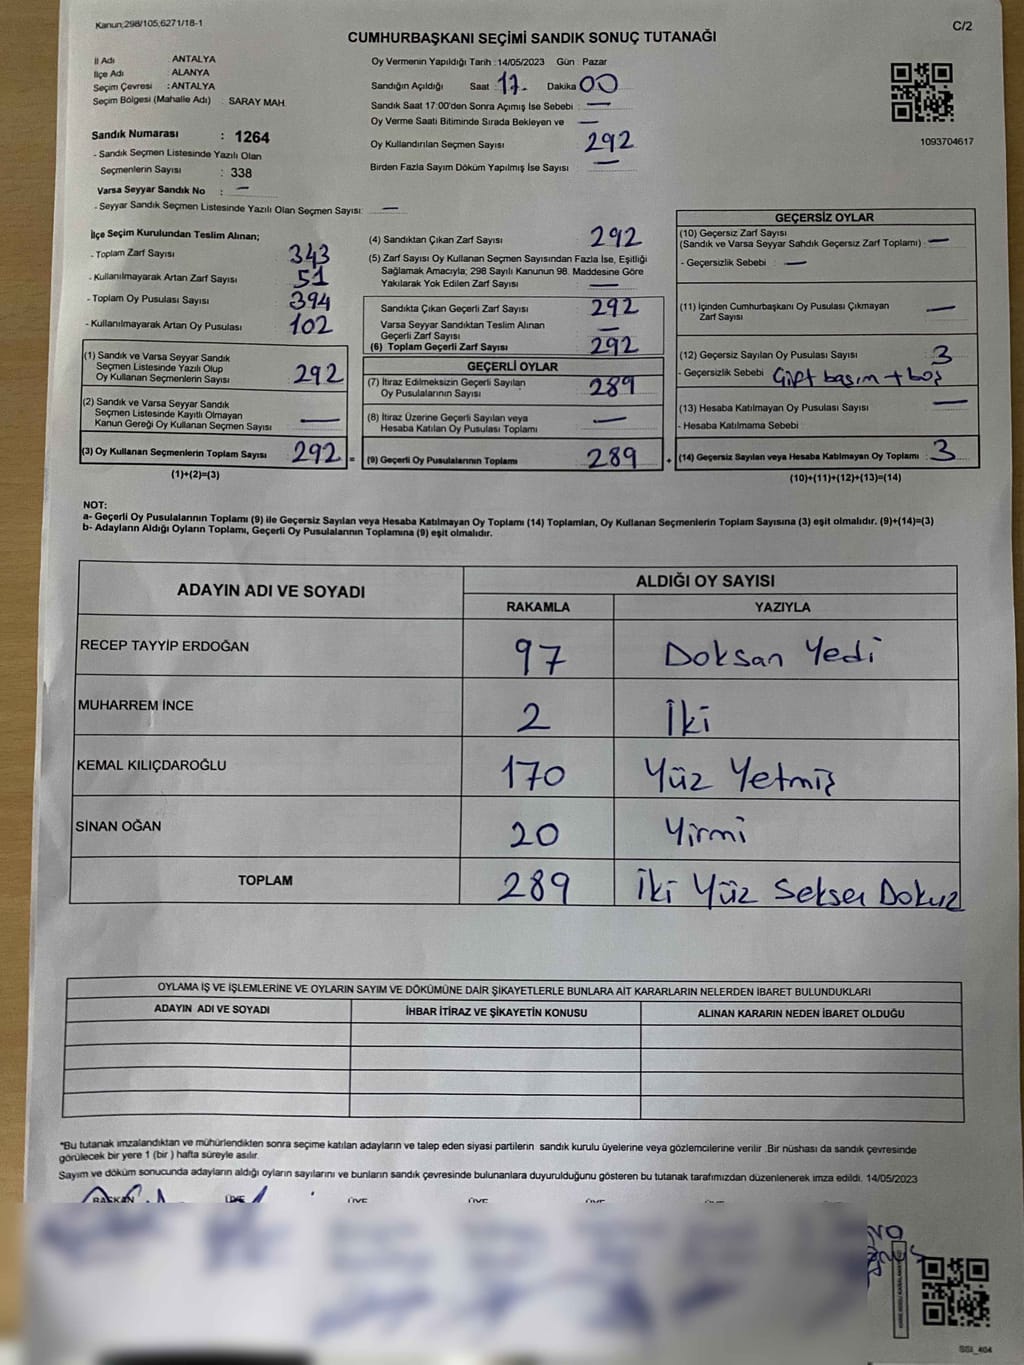 Kanun;298/105,6271/18-1
C/2
CUMHURBAŞKANI SEÇİMİ SANDIK SONUÇ TUTANAĞI
İl Adı : ANTALYA
İlçe Adı : ALANYA
Seçim Çevresi : ANTALYA
Seçim Bölgesi (Mahalle Adı) : SARAY MAH.
Sandık Numarası : 1264
- Sandık Seçmen Listesinde Yazılı Olan
Seçmenlerin Sayısı : 338
Varsa Seyyar Sandık No : —
- Seyyar Sandık Seçmen Listesinde Yazılı Olan Seçmen Sayısı: —
Oy Vermenin Yapıldığı Tarih :14/05/2023 Gün : Pazar
Sandığın Açıldığı Saat : 17. Dakika 00
Sandık Saat 17:00'den Sonra Açımış İse Sebebi : —
Oy Verme Saati Bitiminde Sırada Bekleyen ve —
Oy Kullandırılan Seçmen Sayısı 292
Birden Fazla Sayım Döküm Yapılmış İse Sayısı —
1093704617
İlçe Seçim Kurulundan Teslim Alınan;
- Toplam Zarf Sayısı : 343
- Kullanılmayarak Artan Zarf Sayısı : 51
- Toplam Oy Pusulası Sayısı : 394
- Kullanılmayarak Artan Oy Pusulası : 102
(1) Sandık ve Varsa Seyyar Sandık
Seçmen Listesinde Yazılı Olup
Oy Kullanan Seçmenlerin Sayısı : 292
(2) Sandık ve Varsa Seyyar Sandık
Seçmen Listesinde Kayıtlı Olmayan
Kanun Gereği Oy Kullanan Seçmen Sayısı : —
(3) Oy Kullanan Seçmenlerin Toplam Sayısı : 292 =
(1)+(2)=(3)
(4) Sandıktan Çıkan Zarf Sayısı : 292
(5) Zarf Sayısı Oy Kullanan Seçmen Sayısından Fazla İse, Eşitliği
Sağlamak Amacıyla; 298 Sayılı Kanunun 98. Maddesine Göre
Yakılarak Yok Edilen Zarf Sayısı : —
Sandıkta Çıkan Geçerli Zarf Sayısı : 292
Varsa Seyyar Sandıktan Teslim Alınan
Geçerli Zarf Sayısı : —
(6) Toplam Geçerli Zarf Sayısı : 292
GEÇERLİ OYLAR
(7) İtiraz Edilmeksizin Geçerli Sayılan
Oy Pusulalarının Sayısı : 289
(8) İtiraz Üzerine Geçerli Sayılan veya
Hesaba Katılan Oy Pusulası Toplamı : —
(9) Geçerli Oy Pusulalarının Toplamı : 289 +
GEÇERSİZ OYLAR
(10) Geçersiz Zarf Sayısı
(Sandık ve Varsa Seyyar Sandık Geçersiz Zarf Toplamı) : —
- Geçersizlik Sebebi : —
(11) İçinden Cumhurbaşkanı Oy Pusulası Çıkmayan
Zarf Sayısı : —
(12) Geçersiz Sayılan Oy Pusulası Sayısı : 3
- Geçersizlik Sebebi : Çift basım + boş
(13) Hesaba Katılmayan Oy Pusulası Sayısı : —
- Hesaba Katılmama Sebebi :
(14) Geçersiz Sayılan veya Hesaba Katılmayan Oy Toplamı : 3
(10)+(11)+(12)+(13)=(14)
NOT:
a- Geçerli Oy Pusulalarının Toplamı (9) ile Geçersiz Sayılan veya Hesaba Katılmayan Oy Toplamı (14) Toplamları, Oy Kullanan Seçmenlerin Toplam Sayısına (3) eşit olmalıdır. (9)+(14)=(3)
b- Adayların Aldığı Oyların Toplamı, Geçerli Oy Pusulalarının Toplamına (9) eşit olmalıdır.
ADAYIN ADI VE SOYADI ALDIĞI OY SAYISI
RAKAMLA YAZIYLA
RECEP TAYYİP ERDOĞAN 97 Doksan Yedi
MUHARREM İNCE 2 İki
KEMAL KILIÇDAROĞLU 170 Yüz Yetmiş
SİNAN OĞAN 20 Yirmi
TOPLAM 289 İki Yüz Seksen Dokuz
OYLAMA İŞ VE İŞLEMLERİNE VE OYLARIN SAYIM VE DÖKÜMÜNE DAİR ŞİKAYETLERLE BUNLARA AİT KARARLARIN NELERDEN İBARET BULUNDUKLARI
ADAYIN ADI VE SOYADI İHBAR İTİRAZ VE ŞİKAYETİN KONUSU ALINAN KARARIN NEDEN İBARET OLDUĞU
*Bu tutanak imzalandıktan ve mühürlendikten sonra seçime katılan adayların ve talep eden siyasi partilerin sandık kurulu üyelerine veya gözlemcilerine verilir .Bir nüshası da sandık çevresinde
görülecek bir yere 1 (bir ) hafta süreyle asılır.
Sayım ve döküm sonucunda adayların aldığı oyların sayılarını ve bunların sandık çevresinde bulunanlara duyurulduğunu gösteren bu tutanak tarafımızdan düzenlenerek imza edildi. 14/05/2023
BAŞKAN ÜYE ÜYE ÜYE ÜYE ÜYE
SSI_404